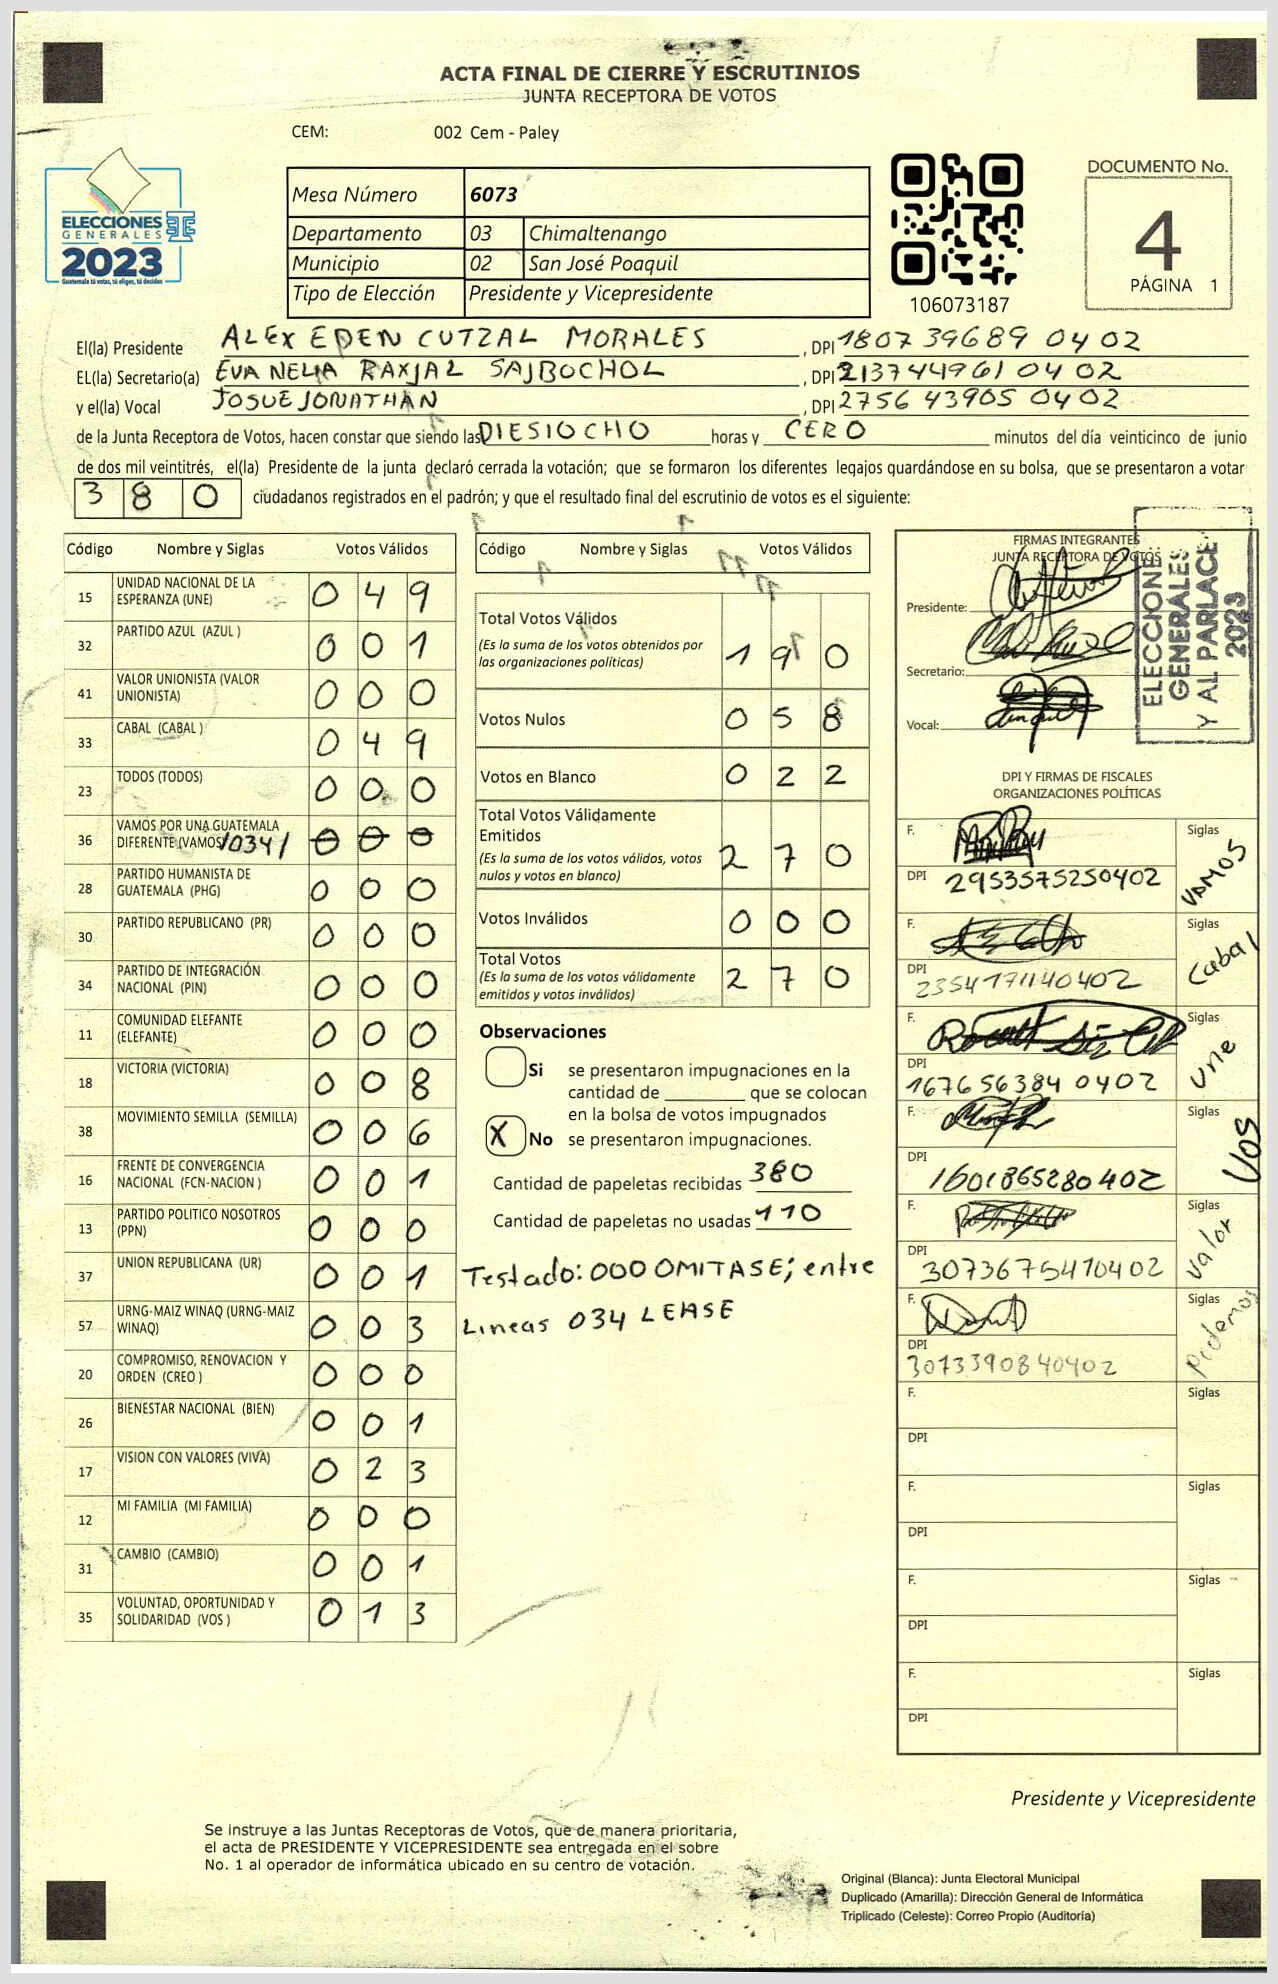 ACTA FINAL DE CIERRE Y ESCRUTINIOS
JUNTA RECEPTORA DE VOTOS
CEM: 002 Cem - Paley
ELECCIONES
GENERALES
2023
Guatemala tú votas, tú eliges, tú decides
Mesa Número 6073
Departamento 03 Chimaltenango
Municipio 02 San José Poaquil
Tipo de Elección Presidente y Vicepresidente
106073187
DOCUMENTO No.
4
PÁGINA 1
El(la) Presidente ALEX EDEN CUTZAL MORALES, DPI 1807 39689 0402
EL(la) Secretario(a) EVA NELIA RAXJAL SAJBOCHOL, DPI 213744961 0402
y el(la) Vocal JOSUE JONATHAN, DPI 2756 43905 0402
de la Junta Receptora de Votos, hacen constar que siendo las DIESIOCHO horas y CERO minutos del día veinticinco de junio
de dos mil veintitrés, el(la) Presidente de la junta declaró cerrada la votación; que se formaron los diferentes legajos quardándose en su bolsa, que se presentaron a votar
380 ciudadanos registrados en el padrón; y que el resultado final del escrutinio de votos es el siguiente:
Código Nombre y Siglas Votos Válidos
15 UNIDAD NACIONAL DE LA ESPERANZA (UNE) 049
32 PARTIDO AZUL (AZUL ) 001
41 VALOR UNIONISTA (VALOR UNIONISTA) 000
33 CABAL (CABAL ) 049
23 TODOS (TODOS) 000
36 VAMOS POR UNA GUATEMALA DIFERENTE (VAMOS) /034/ 000
28 PARTIDO HUMANISTA DE GUATEMALA (PHG) 000
30 PARTIDO REPUBLICANO (PR) 000
34 PARTIDO DE INTEGRACIÓN NACIONAL (PIN) 000
11 COMUNIDAD ELEFANTE (ELEFANTE) 000
18 VICTORIA (VICTORIA) 008
38 MOVIMIENTO SEMILLA (SEMILLA) 006
16 FRENTE DE CONVERGENCIA NACIONAL (FCN-NACION ) 001
13 PARTIDO POLITICO NOSOTROS (PPN) 000
37 UNION REPUBLICANA (UR) 001
57 URNG-MAIZ WINAQ (URNG-MAIZ WINAQ) 003
20 COMPROMISO, RENOVACION Y ORDEN (CREO ) 000
26 BIENESTAR NACIONAL (BIEN) 001
17 VISION CON VALORES (VIVA) 023
12 MI FAMILIA (MI FAMILIA) 000
31 CAMBIO (CAMBIO) 001
35 VOLUNTAD, OPORTUNIDAD Y SOLIDARIDAD (VOS ) 013
Código Nombre y Siglas Votos Válidos
Total Votos Válidos
(Es la suma de los votos obtenidos por
las organizaciones políticas) 190
Votos Nulos 058
Votos en Blanco 022
Total Votos Válidamente
Emitidos
(Es la suma de los votos válidos, votos
nulos y votos en blanco) 270
Votos Inválidos 000
Total Votos
(Es la suma de los votos válidamente
emitidos y votos inválidos) 270
Observaciones
Si se presentaron impugnaciones en la
cantidad de ________ que se colocan
en la bolsa de votos impugnados
X No se presentaron impugnaciones.
Cantidad de papeletas recibidas 380
Cantidad de papeletas no usadas 110
Testado: 000 OMITASE; entre
Lineas 034 LEASE
FIRMAS INTEGRANTES
JUNTA RECEPTORA DE VOTOS
Presidente:
Secretario:
Vocal:
ELECCIONES
GENERALES
Y AL PARLACE
2023
DPI Y FIRMAS DE FISCALES
ORGANIZACIONES POLÍTICAS
F. Siglas VAMOS
DPI 2953575250402
F. Siglas Cabal
DPI 2354171140402
F. Siglas Une
DPI 167656384 0402
F. Siglas VOS
DPI 1601865280402
F. Siglas Valor
DPI 3073675410402
F. Siglas Pidemos
DPI 3073390840402
F. Siglas
DPI
F. Siglas
DPI
F. Siglas
DPI
F. Siglas
DPI
Presidente y Vicepresidente
Se instruye a las Juntas Receptoras de Votos, que de manera prioritaria,
el acta de PRESIDENTE Y VICEPRESIDENTE sea entregada en el sobre
No. 1 al operador de informática ubicado en su centro de votación.
Original (Blanca): Junta Electoral Municipal
Duplicado (Amarilla): Dirección General de Informática
Triplicado (Celeste): Correo Propio (Auditoría)